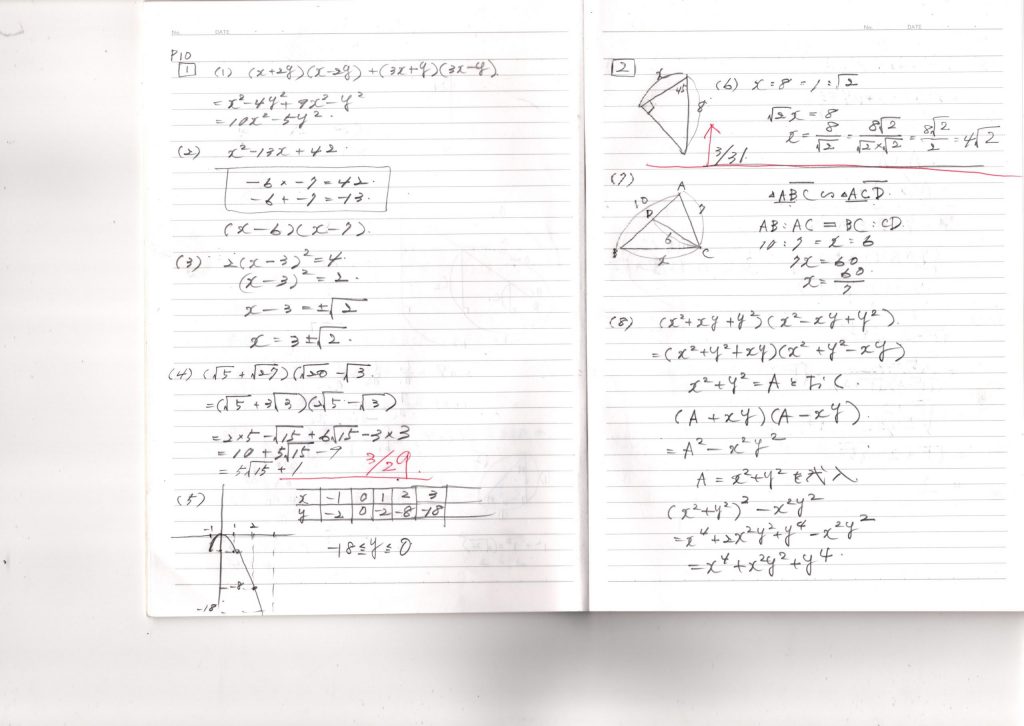 No. DATE
P10
1 (1) (x+2y)(x-2y)+(3x+y)(3x-y)
=x²-4y²+9x²-y²
=10x²-5y².
(2) x²-13x+42.
-6×-7=42.
-6+-7=-13.
(x-6)(x-7).
(3) 2(x-3)²=4.
(x-3)²=2.
x-3=±√2
x=3±√2.
(4) (√5+√27)(√20-√3.
=(√5+3√3)(2√5-√3)
=2×5-√15+6√15-3×3
=10+5√15-9
=5√15+1
3/29.
(5)
x -1 0 1 2 3
y -2 0 -2 -8 -18
-18≦y≦0
-1 2
-8
-18
No. DATE
2
x 45 8
(6) x:8=1:√2
√2x=8
x=8/√2=8√2/√2×√2=8√2/2=4√2
3/31.
(7)
A 10 D 7 6 B x C
△ABC∽△ACD.
AB:AC=BC:CD.
10:7=x:6
7x=60
x=60/7
(8) (x²+xy+y²)(x²-xy+y²).
=(x²+y²+xy)(x²+y²-xy)
x²+y²=Aとおく.
(A+xy)(A-xy).
=A²-x²y²
A=x²+y²を代入
(x²+y²)²-x²y²
=x⁴+2x²y²+y⁴-x²y²
=x⁴+x²y²+y⁴.